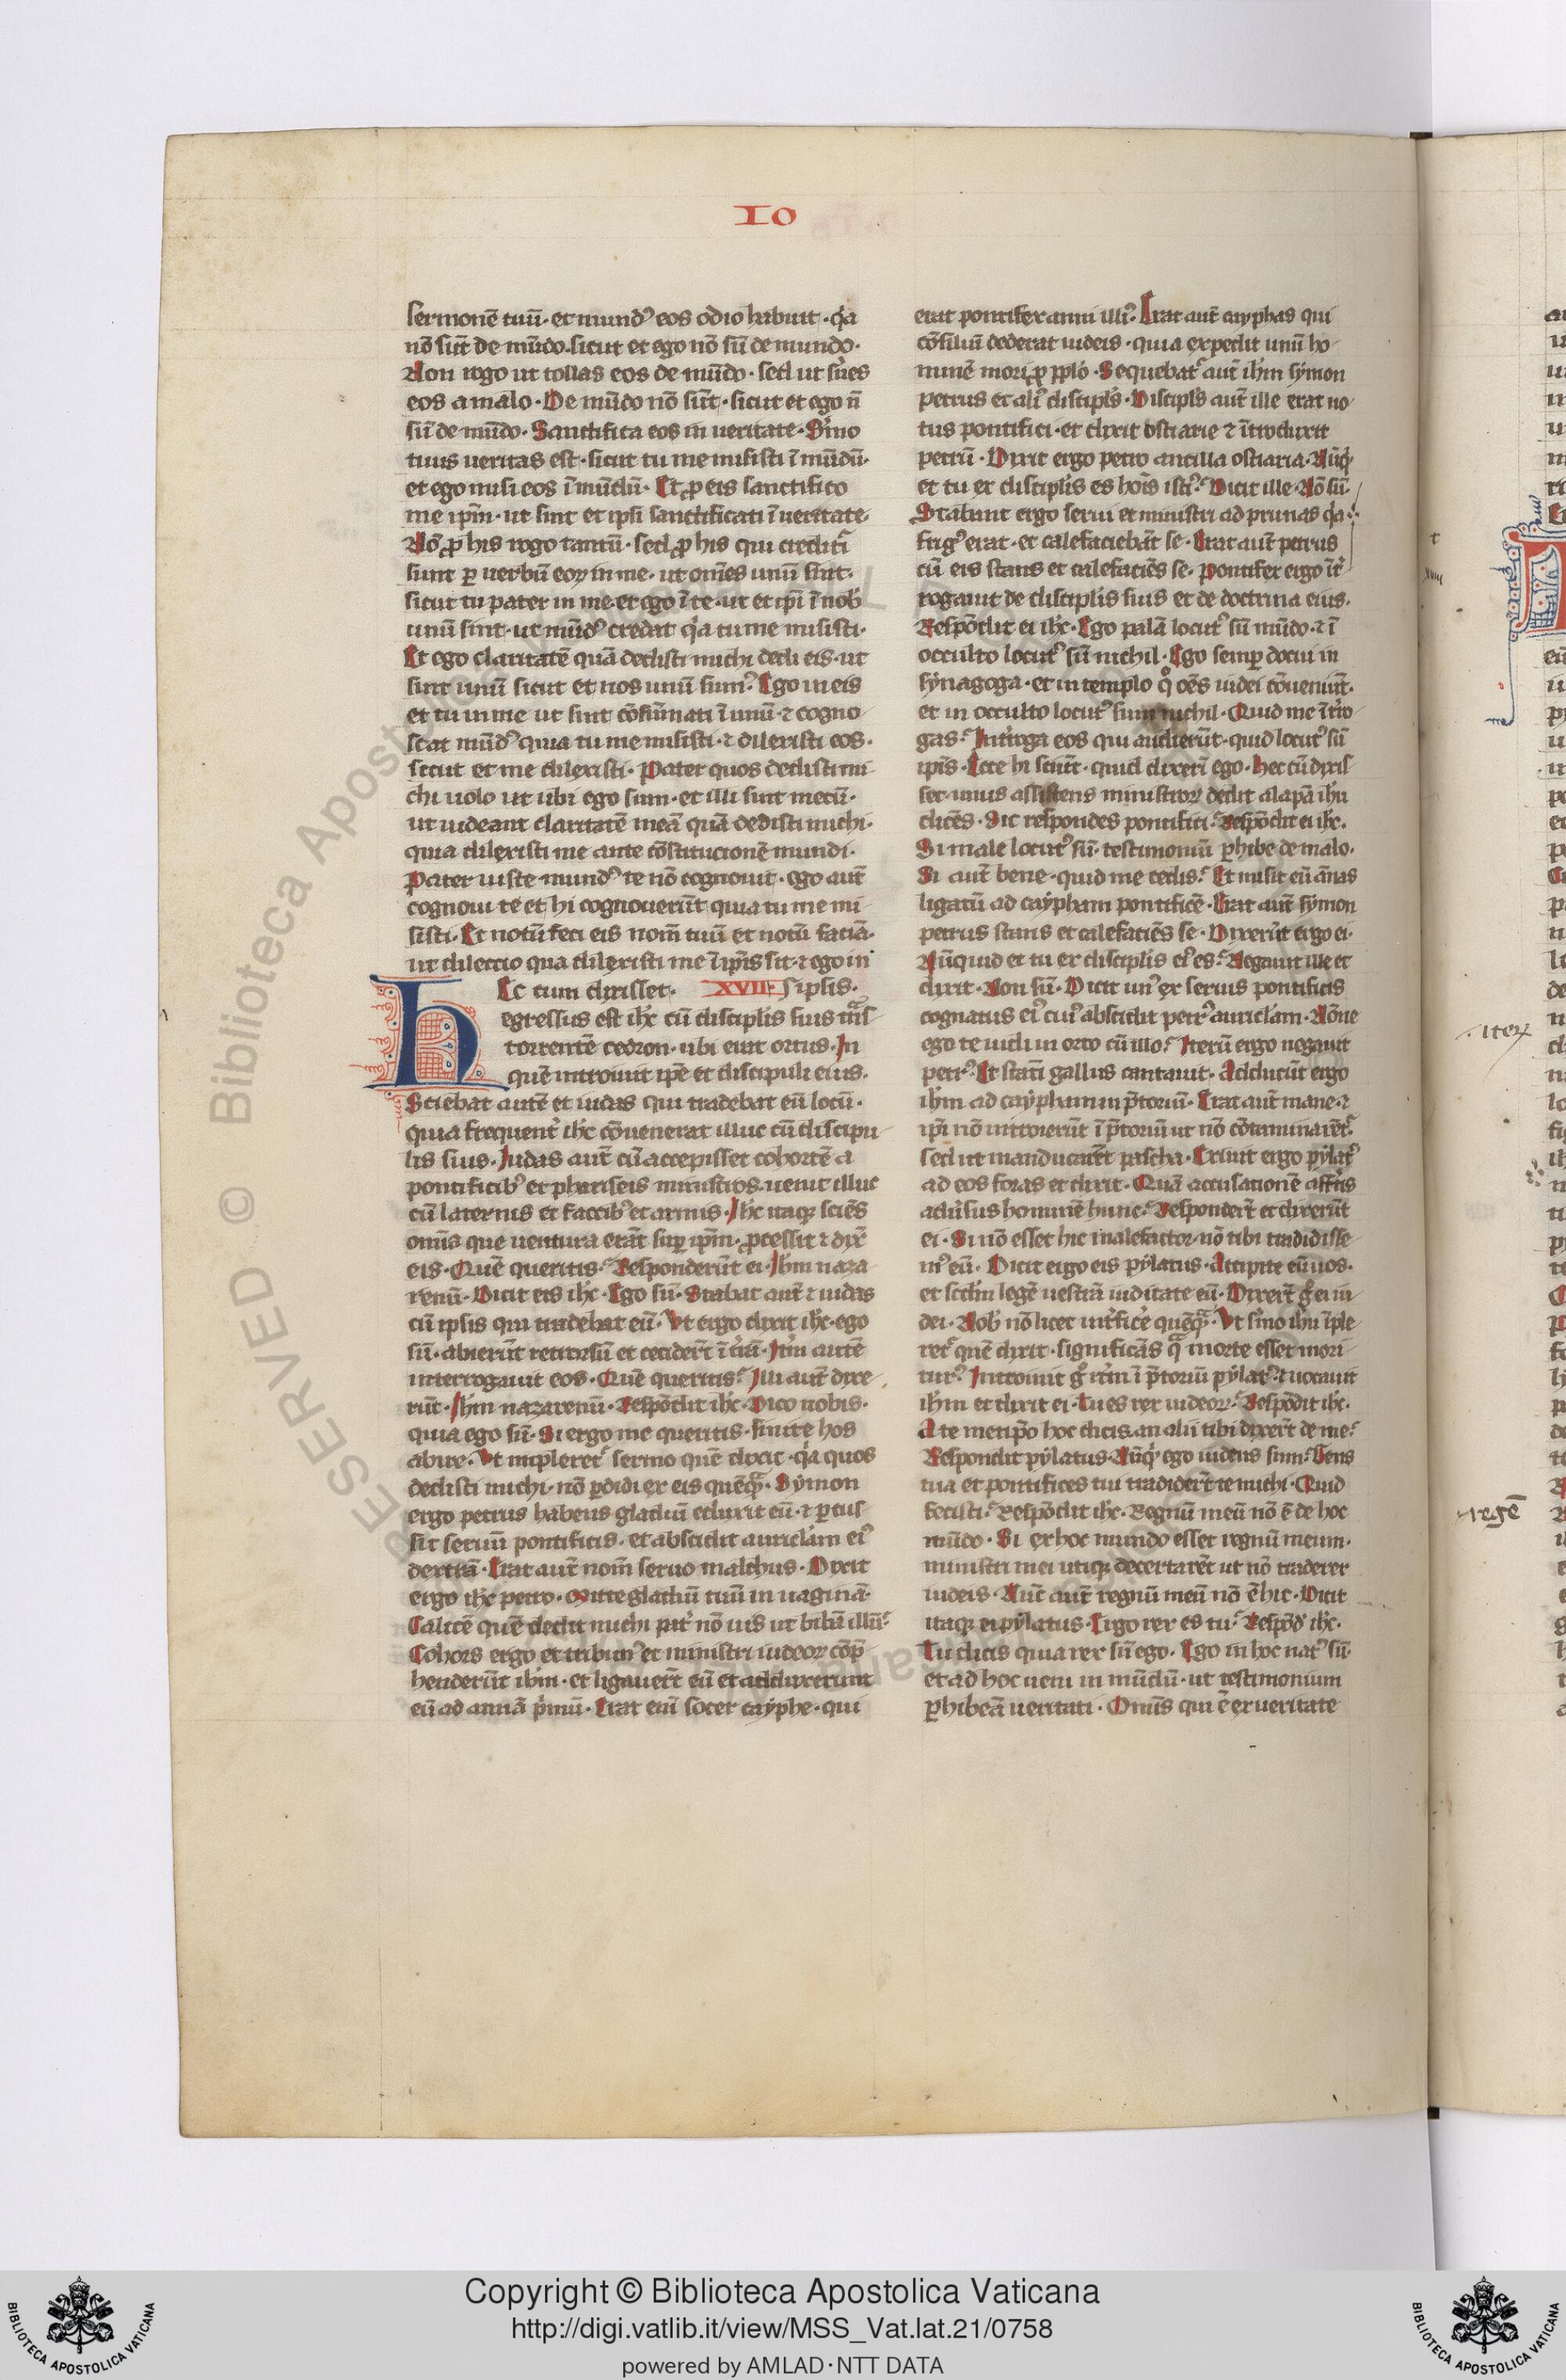 IO
sermonē tuū· et mundꝰ eos odio habuit· qa
nō sūt de mūdo· sicut et ego nō sū de mundo·
Non rogo ut tollas eos de mūdo· sed ut sues
eos a malo· De mūdo nō sūt· sicut et ego n̄
sū de mūdo· Sanctifica eos in ueritate· Smo
tuus ueritas est· sicut tu me misisti ī mūdū·
et ego misi eos ī mūdū· Et ꝓ eis sanctifico
me ipm̄· ut sint et ipsi sanctificati ī ueritate·
Nō ꝓ his rogo tantū· sed ꝓ his qui crediti
sunt ꝑ uerbū eoꝝ in me· ut om̄es unū sint·
sicut tu pater in me· et ego ī te· ut et ipi ī nob
unū sint· ut mūdꝰ credat qa tu me misisti·
Et ego claritatē quā dedisti michi dedi eis· ut
sint unū sicut et nos unū sumꝰ Ego in eis
et tu in me ut sint cōsūmati ī unū· ⁊ cogno
scat mūdꝰ quia tu me misisti· ⁊ dilexisti eos·
sicut et me dilexisti· Pater quos dedisti mi
chi uolo ut ubi ego sum· et illi sint mecū·
ut uideant claritatē meā quā dedisti michi·
quia dilexisti me ante cōstitucionē mundi·
Pater iuste mundꝰ te nō cognouit· ego aut̄
cognoui te et hi cognouerūt quia tu me mi
sisti· Et notū feci eis nom̄ tuū et notū faciā·
ut dilectio qua dilexisti me ī ip̄is sit· ⁊ ego in
Hec cum dixisset· XVII· ipsis·
egressus est ihc cū disciplis suis tͣns
torrentē cedron· ubi erat ortus· In
quē introiuit ipē et discipuli eius·
Sciebat autē et iudas qui tradebat eū locū·
quia frequent ihc cōuenerat illuc cū discipu
lis suis· Iudas aut̄ cū accepisset cohortē a
pontificibꝰ et phariseis ministros· uenit illuc
cū laternis et faccibꝰ et armis· Ihc itaqꝫ sciēs
omīa que uentura erāt suꝑ ipm̄· ꝓcessit ⁊ dix̄
eis· Quē queritis· Responderūt ei· Ihm naza
renū· Dicit eis ihc· Ego sū· Stabat aut̄ ⁊ iudas
cū ipsis qui tradebat eū· Vt ergo dixit ihc· ego
sū· abierūt retrorsū et cecider̄t ī trā· Itm̄ autē
interrogauit eos· Quē queritis· Illi aut̄ dixe
rūt· Ihm nazarenū· Respōdit ihc· Dico uobis·
quia ego sū· Si ergo me queritis· sinite hos
abire· Vt impleretᷣ sermo quē dixit· qa quos
dedisti michi· nō ꝑdidi ex eis quēqͣ· Symon
ergo petrus habens gladiū eduxit eū· ⁊ ꝑcus
sit seruū pontificis· et abscidit auriclam eiꝰ
dextrā· Erat aut̄ nom̄ seruo malchus· Dixit
ergo ihc petro· Mitte gladiū tuū in uaginā·
Calicē quē dedit michi pat̄ nō uis ut bibā illū·
Cohors ergo et tribunꝰ et ministri iudeoꝝ cōp̄
henderūt ihm· et ligauer̄t eū et adduxerunt
eū ad annā p̄mū· Erat eni socer cayphe· qui
erat pontifex anni illiꝰ Erat aut̄ cayphas qui
cōsiliū dederat iudeis· quia expedit unū ho
minē mori ꝓ pplo· Sequebatᷣ aut̄ ihm symon
petrus et aliꝰ discipls· Discipls aut̄ ille erat no
tus pontifici· et dixit ostiarie ⁊ ītroduxit
petrū· Dixit ergo petro ancilla ostiaria· Nūqd
et tu ex disciplis es hois isti· Dicit ille· Nō sū·
Stabant ergo serui et ministri ad prunas qa
frigꝰ erat· et calefaciebāt se· Erat aut̄ petrus
cū eis stans et calefaciēs se· Pontifex ergo īt
rogauit de disciplis suis et de doctrina eius·
Respōdit ei ihc· Ego palā locutꝰ sū mūdo· ⁊ ī
occulto locutꝰ sū nichil· Ego semꝑ docui in
synagoga· et in templo qͦ oēs iudei cōueniūt·
et in occulto locutꝰ sum nichil· Quid me ītro
gas· Introga eos qui audierūt· quid locutꝰ sū
ipīs· Ecce hi sciūt· quid dixerī ego· Hec cū dixis
set· unus assistens ministroꝝ dedit alapā ihu
dicēs· Sic respondes pontifici· Respōdit ei ihc·
Si male locutꝰ sū· testimoniū ꝑhibe de malo·
Si aut̄ bene· quid me cedis· Et misit eū ānas
ligatū ad caypham pontificē· Erat aut̄ symon
petrus stans et calefaciēs se· Dixerūt ergo ei·
Nūquid et tu ex disciplis eiꝰ es· Negauit ille et
dixit· Non sū· Dicit unꝰ ex seruis pontificis
cognatus eiꝰ cuiꝰ abscidit petrꝰ auriclam· Nōne
ego te uidi in orto cū illo· Iterū ergo negauit
petrꝰ Et stati gallus cantauit· Adducūt ergo
ihm ad caypham in p̄toriū· Erat aut̄ mane· ⁊
ipi nō introierūt ī p̄toriū ut nō cōtaminarētᷣ
sed ut manducarēt pascha· Exiuit ergo pylatꝰ
ad eos foras et dixit· Quā accusationē affertis
aduersus hominē hunc· Responder̄t et dixerūt
ei· Si nō esset hic malefactor· nō tibi tradidisse
mꝰ eū· Dicit ergo eis pylatus· Accipite eū uos·
et scdm legē uestrā iudicate eū· Dixer̄t gͦ ei iu
dei· Nob nō licet int̄ficē quēqͣ· Vt smo ihu īple
retᷣ quē dixit· significās qͣ morte esset mori
turꝰ Introiuit gͦ itm̄ ī p̄toriū pylatꝰ ⁊ uocauit
ihm et dixit ei· Tu es rex iudeoꝝ· Respōdit ihc·
A te metipo hoc dicis· an alii tibi dixer̄t de me·
Respondit pylatus· Nūqd ego iudeus sum· Gens
tua et pontifices tui tradider̄t te michi· Quid
fecisti· Respōdit ihc· Regnū meū nō ē de hoc
mūdo· Si ex hoc mundo esset regnū meum·
ministri mei utiqꝫ decertarēt ut nō traderer
iudeis· Nūc aut̄ regnū meū nō ē hic· Dicit
itaqꝫ ei pylatus· Ergo rex es tu· Respōd ihc·
Tu dicis quia rex sū ego· Ego in hoc natꝰ sū·
et ad hoc ueni in mūdū· ut testimonium
ꝑhibeā ueritati· Omīs qui ē ex ueritate
regē
RESERVED © Biblioteca Apostolica
Copyright © Biblioteca Apostolica Vaticana
http://digi.vatlib.it/view/MSS_Vat.lat.21/0758
powered by AMLAD·NTT DATA
BIBLIOTECA APOSTOLICA VATICANA
BIBLIOTECA APOSTOLICA VATICANA